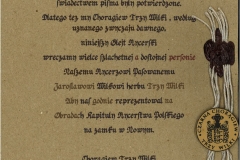 świadectwem pisma było potwierdzone.
Dlatego też my Chorągiew Trzy Wilki, według
uznanego zwyczaju dawnego,
niniejszy Glejt Rycerski
wręczamy wielce szlachetnej a dostojnej personie
Naszemu Rycerzowi Pasowanemu
Jarosławowi Milkowi herbu Trzy Wilki
Aby nas godnie reprezentował na
Obradach Kapituły Rycerstwa Polskiego
na zamku w Nowym.
Chorągiew Trzy Wilki
TRZY WILKI